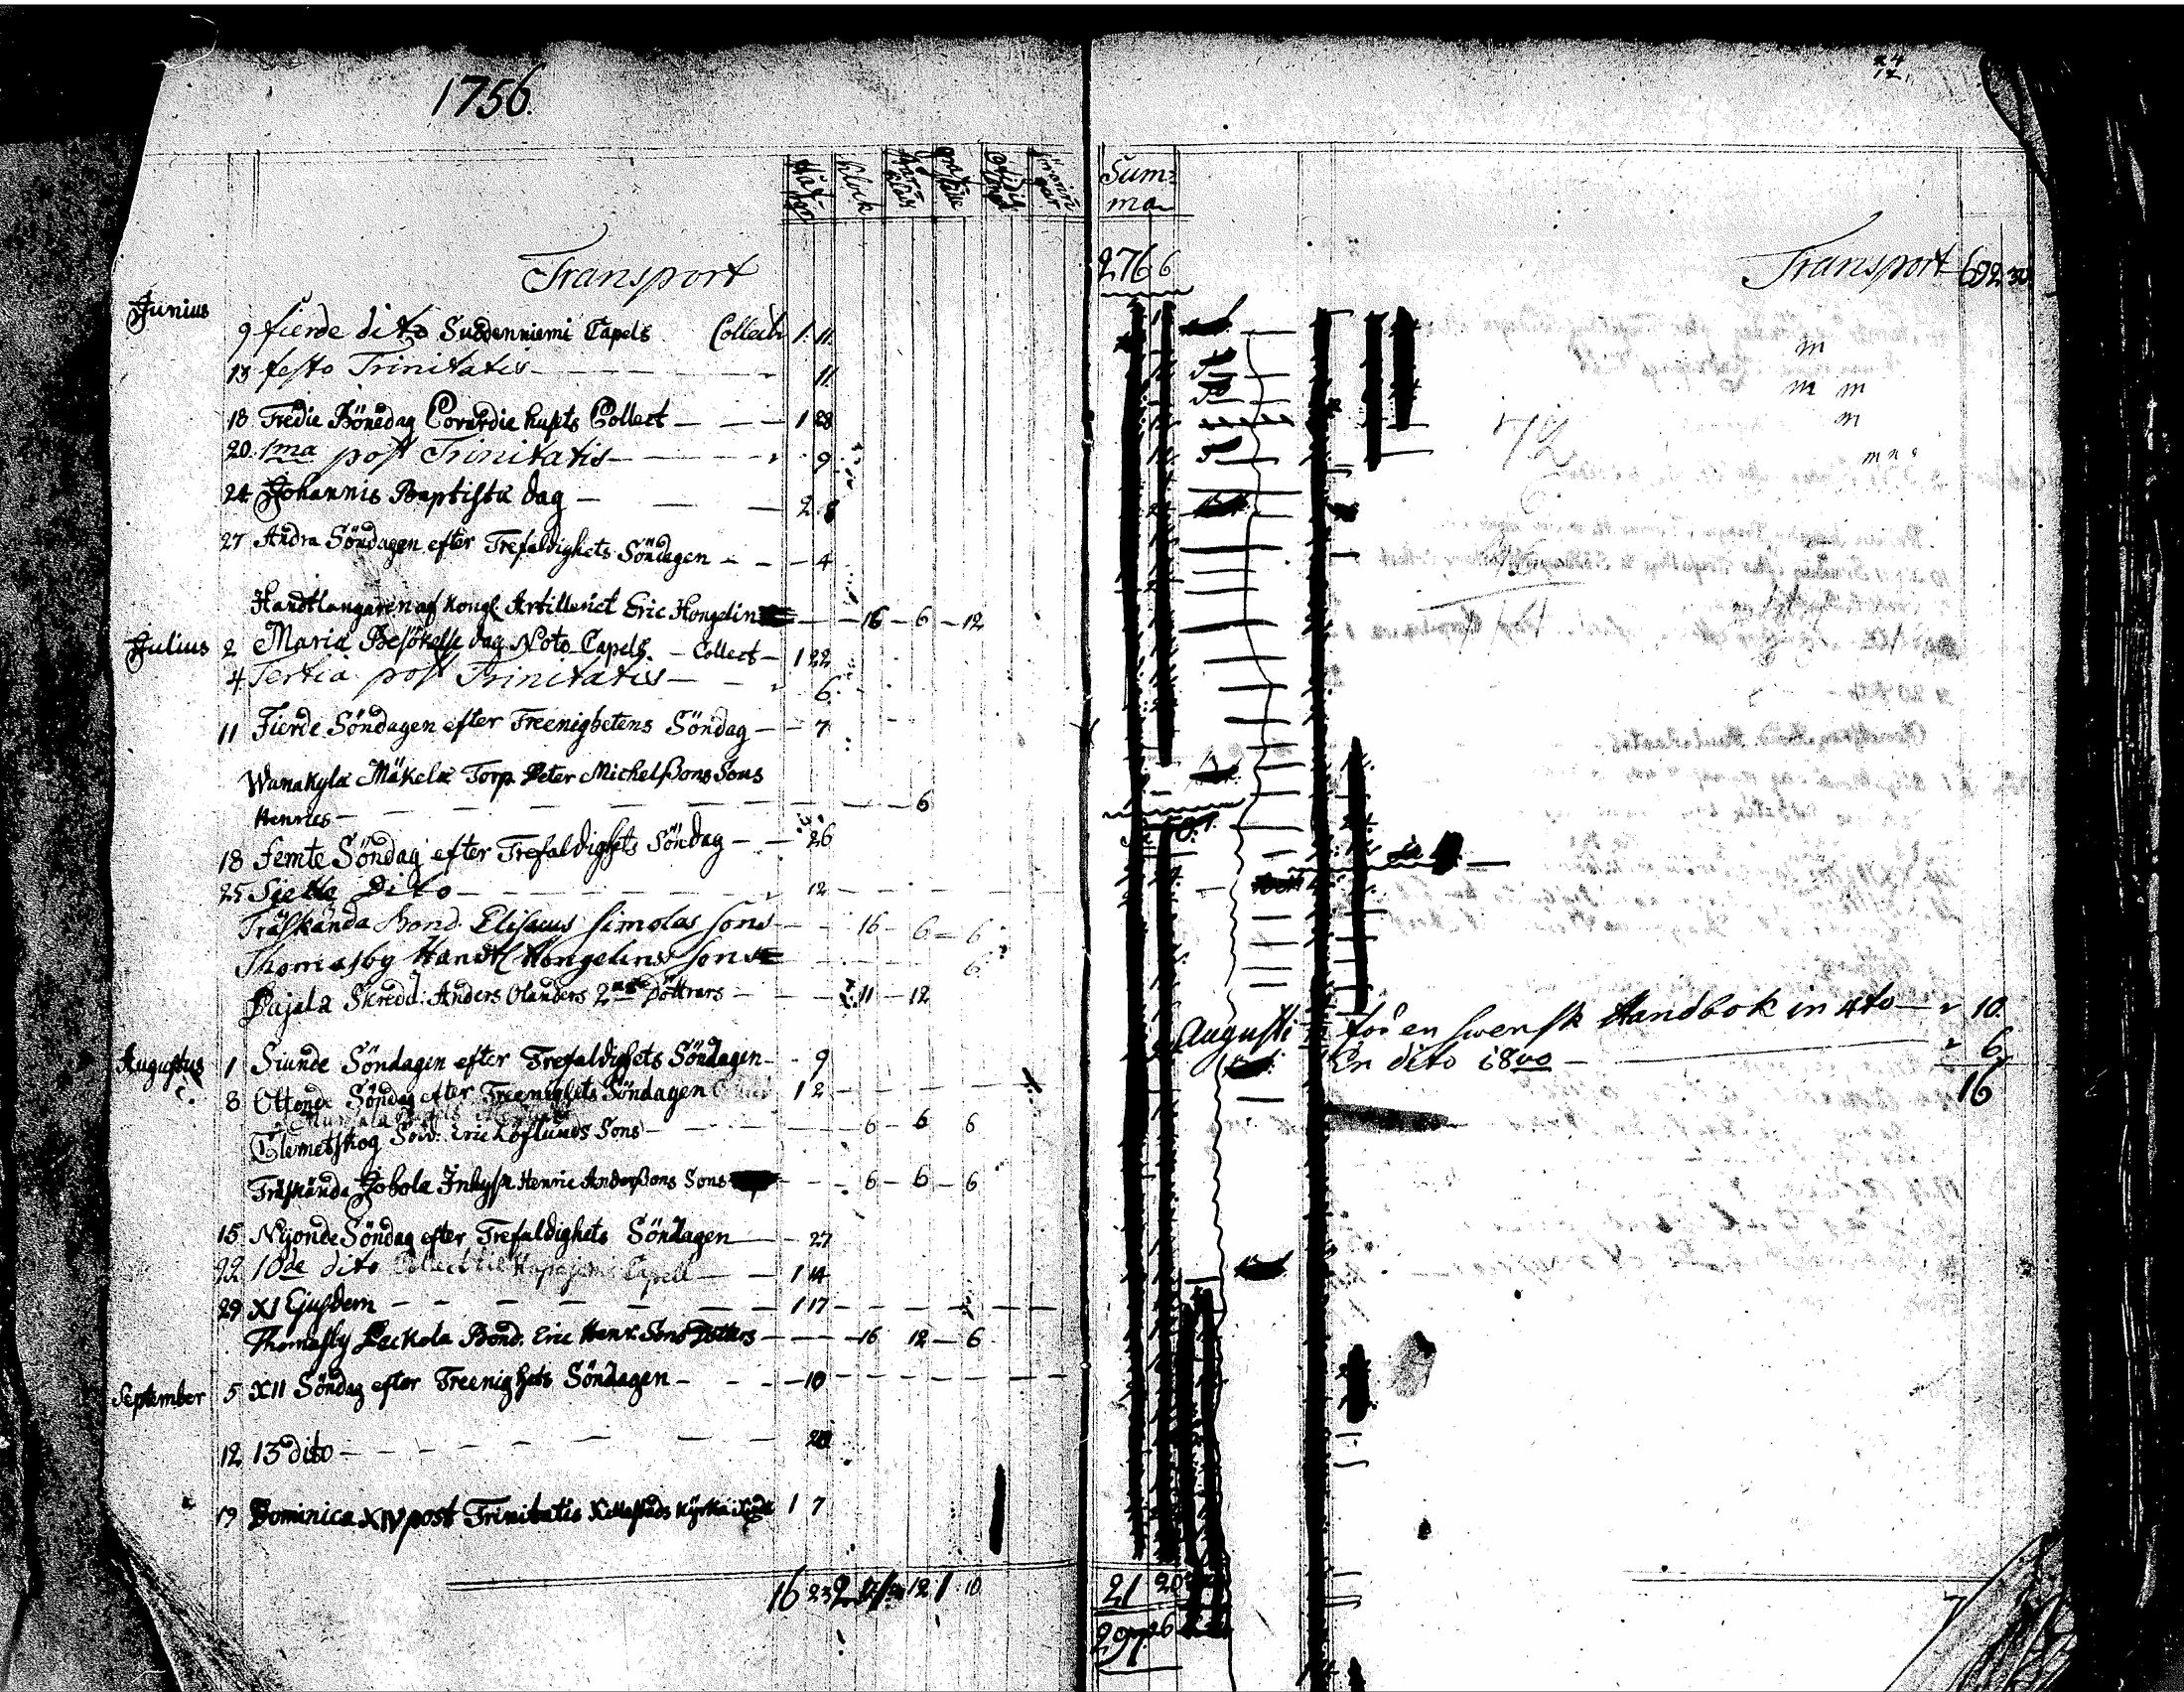 1756.
24
12
Håf-
wen
Klock
Summa
Transport 276 6
Junius
9 fierde dito Suddenniemi Capels Collect 1 11
13 festo Trinitatis — 11
18 Tredie Bönedag Collect — 1 28
20 1ma post Trinitatis — 9
24 Johannis Baptistæ dag — 2 8
27 Andra Söndagen efter Trefaldighets Söndagen — 4
Handtlangaren af Kongl. Artilleriet Eric Hongelin — 16 — 6 — 12
Julius 2 Mariæ Besökelse dag Noto Capels. — Collect — 1 22
4 Tertia post Trinitatis — 6
11 Fierde Söndagen efter Treenighetens Söndag — 7
Wanakylä Mäkelä Torp. Peter Michelßons Sons
Henrics — 6
18 femte Söndag efter Trefaldighets Söndag — 26
25 Siette Dito — 12
Träskända Bond. Elisæus Simolas sons — 16 — 6 — 6
Thomasby Handtl Hongelins Son — 6
Pajala Skredd: Anders Olanders 2ne Döttrars — 11 — 12
Augustus 1 Siunde Söndagen efter Trefaldighets Söndagen — 9
8 Ottonde Söndag efter Treenighets Söndagen 1 2
Clemetskog Sold. Eric Löflunds Sons — 6 — 6 6
Träskända Jobola Inhysn Henric Anderßons Sons — 6 — 6 — 6
15 Nijonde Söndag efter Trefaldighets Söndagen — 27
22 10de dito Collect til Capell — 1 14
29 XI Ejusdem — 1 17
Thomasby Packola Bond. Eric Henr. Sons Dotters — 16 12 — 6
September 5 XII Söndag efter Treenighets Söndagen — 10
12 13 dito — 20
19 Dominica XIV post Trinitatis Kyrka 1 7
16 23 12 1 10
21 20
297 26
Transport 692 32
Augusti för en Swensk Handbok in 4to — 10
En dito i 8vo — 6
16